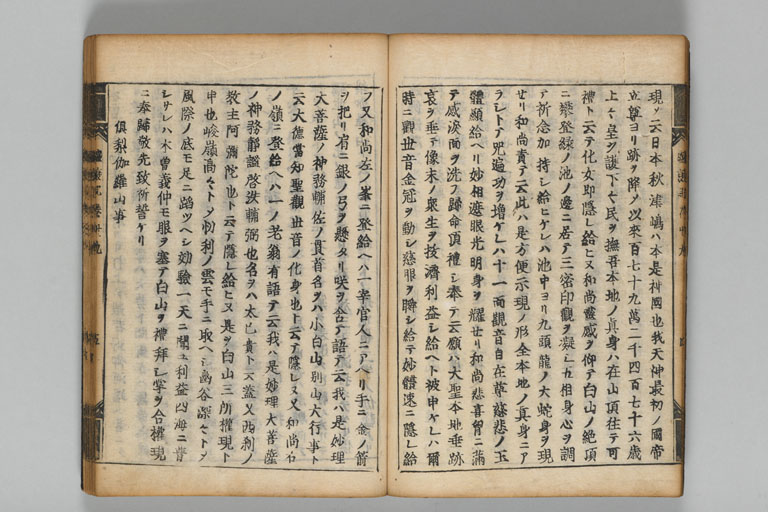 現ソ云日本秋津嶋ハ本是神國也我天神最初ノ國帝
立尊ヨリ跡ヲ降ノ以來百七十九萬二千四百七十六歳
上ハ皇ヲ護下ハ民ヲ撫吾本地ノ真身ハ在山頂往テ可
禮ト云テ化女即隱レ給ヒヌ和尚霊感ヲ仰テ白山ノ絶頂
ニ攀登緑ノ池ノ邊ニ居テ三密印觀ヲ凝シ五相身心ヲ調
ア祈念加持シ給ヒケレハ池中ヨリ九頭龍ノ大蛇身ヲ現
セリ和尚責テ云此ハ是方便示現ノ形全本地ノ真身ニア
ラシトテ咒遍功ヲ增ケレハ十一面觀音自在尊慈悲ノ玉
體顯給ヘリ妙相遮眼光明身ヲ耀セリ和尚悲喜胷ニ滿
テ感涙面ヲ洗フ歸命頂禮シ奉テ云願ハ大聖本地垂跡
哀ヲ垂テ像末ノ衆生ヲ拔濟利益シ給ヘト被申ケレハ爾
時ニ觀世音金冠ヲ動シ慈眼ヲ瞬シ給テ妙體速ニ隱レ給
フ又和尚左ノ峯ニ登給ヘハ一宰官人ニアヘリ手ニ金ノ箭
ヲ把リ肩ニ銀ノ弓ヲ懸タリ咲ヲ含テ語テ云我ハ是妙理
大菩薩ノ神務輔佐ノ貫首名ヲハ小白山別山大行事ト
云大德當知聖觀世音ノ化身也ト云テ隱レヌ又和尚右
ノ嶺ニ登給ヘハ一ノ老翁有語テ云我ハ是妙理大菩薩
ノ神務靜謐啓沃輔弼也名ヲハ太已貴ト云蓋又西刹ノ
教主阿彌陀也ト云テ隱レ給ヒヌ是ヲ白山三所權現ト
申也峻嶺高々トノ忉利ノ雲モ手ニ取ツヘシ幽谷深々トノ
風際ノ底モ足ニ蹈ツヘシ効驗一天ニ聞エ利益四海ニ普
シサレハ木曽義仲モ服ヲ塞テ白山ヲ禮拜シ掌ヲ合權現
ニ奉歸敬先致祈誓ケリ
俱梨伽羅山事